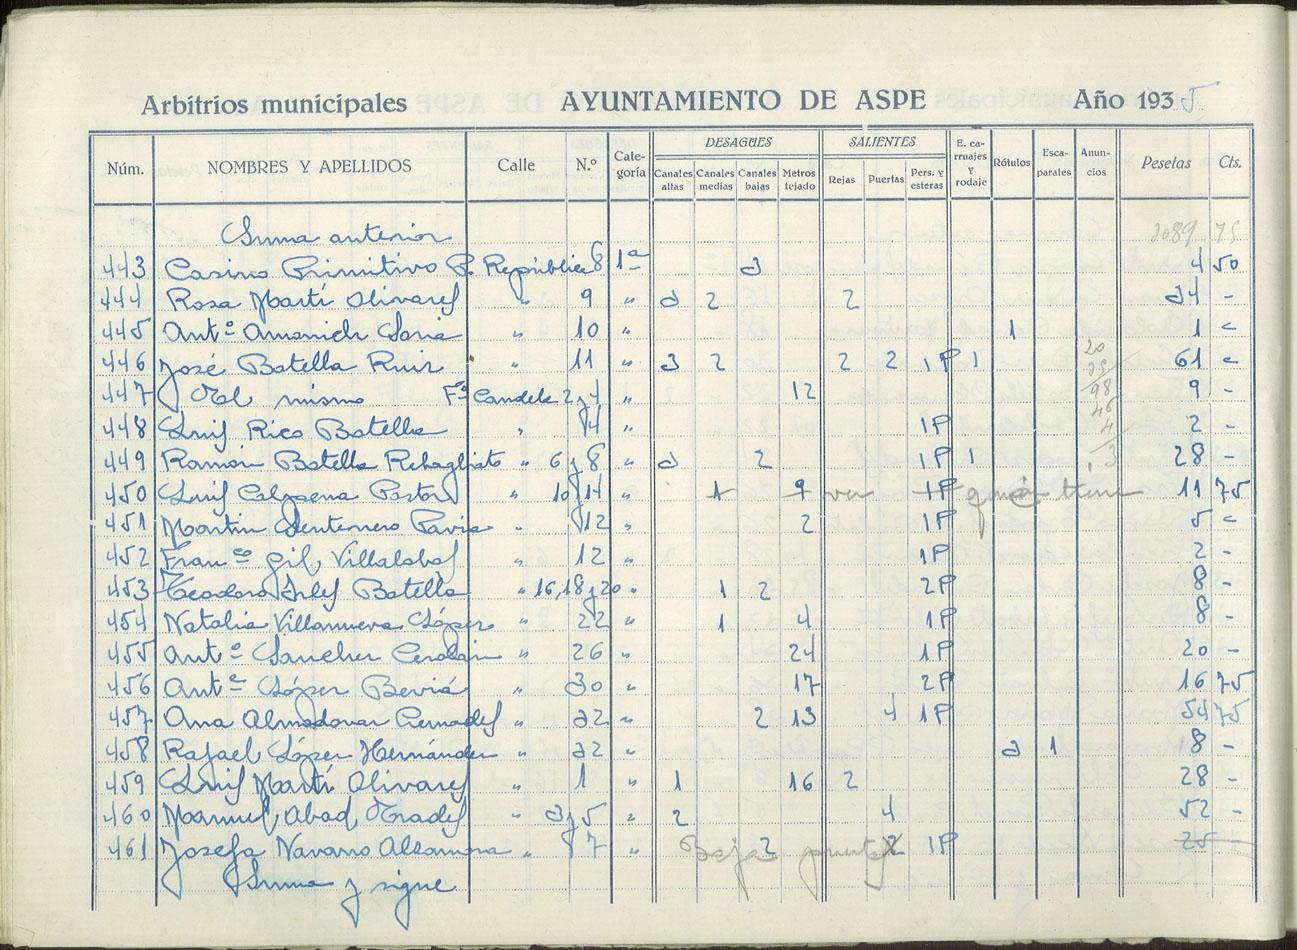 Arbitrios municipales AYUNTAMIENTO DE ASPE Año 1935
Núm. NOMBRES Y APELLIDOS Calle N.º Cate-goría DESAGÜES Canales altas Canales medias Canales bajas Metros tejado SALIENTES Rejas Puertas Pers. y esteras E. ca-rruajes y rodaje Rótulos Esca-parates Anun-cios Pesetas Cts.
Suma anterior 2089 75
443 Casino Primitivo P. República 8 1ª 3 4 50
444 Rosa Martí Olivares " 9 " 3 2 2 34 -
445 Antº Asensich " 10 " 1 1 "
446 José Botella Ruiz " 11 " 3 2 2 2 1P 1 61 "
447 El mismo Fº Candela 2 y 4 " 12 9 -
448 Luis Rico Botella " 4 " 1P 2 -
449 Ramón Botella Rebagliato " 6 y 8 " 3 2 1P 1 28 -
450 Luis Calpena Pastor " 10 y 14 " 1 9 ver 1P que tiene 11 75
451 Martin Pavia " 12 " 2 1P 5 "
452 Franco Gil Villalobos " 12 1P 2 -
453 Teodoro Botella " 16, 18 y 20 " 1 2 2P 8 -
454 Natalia Villanueva López " 22 " 1 4 1P 8 -
455 Antº Sanchez Cerdán " 26 " 24 1P 20 -
456 Antº López Beviá " 30 " 17 2P 16 75
457 Ana Almodovar " 32 " 2 13 4 1P 54 75
458 Rafael López Hernández " 32 " 3 1 8 -
459 Luis Martí Olivares " 1 " 1 16 2 28 -
460 Manuel Abad Prades " 3 y 5 " 2 4 52 -
461 Josefa Navarro Alzamora " 7 " Baja 2 puertas 2 1P 25 -
Suma y sigue